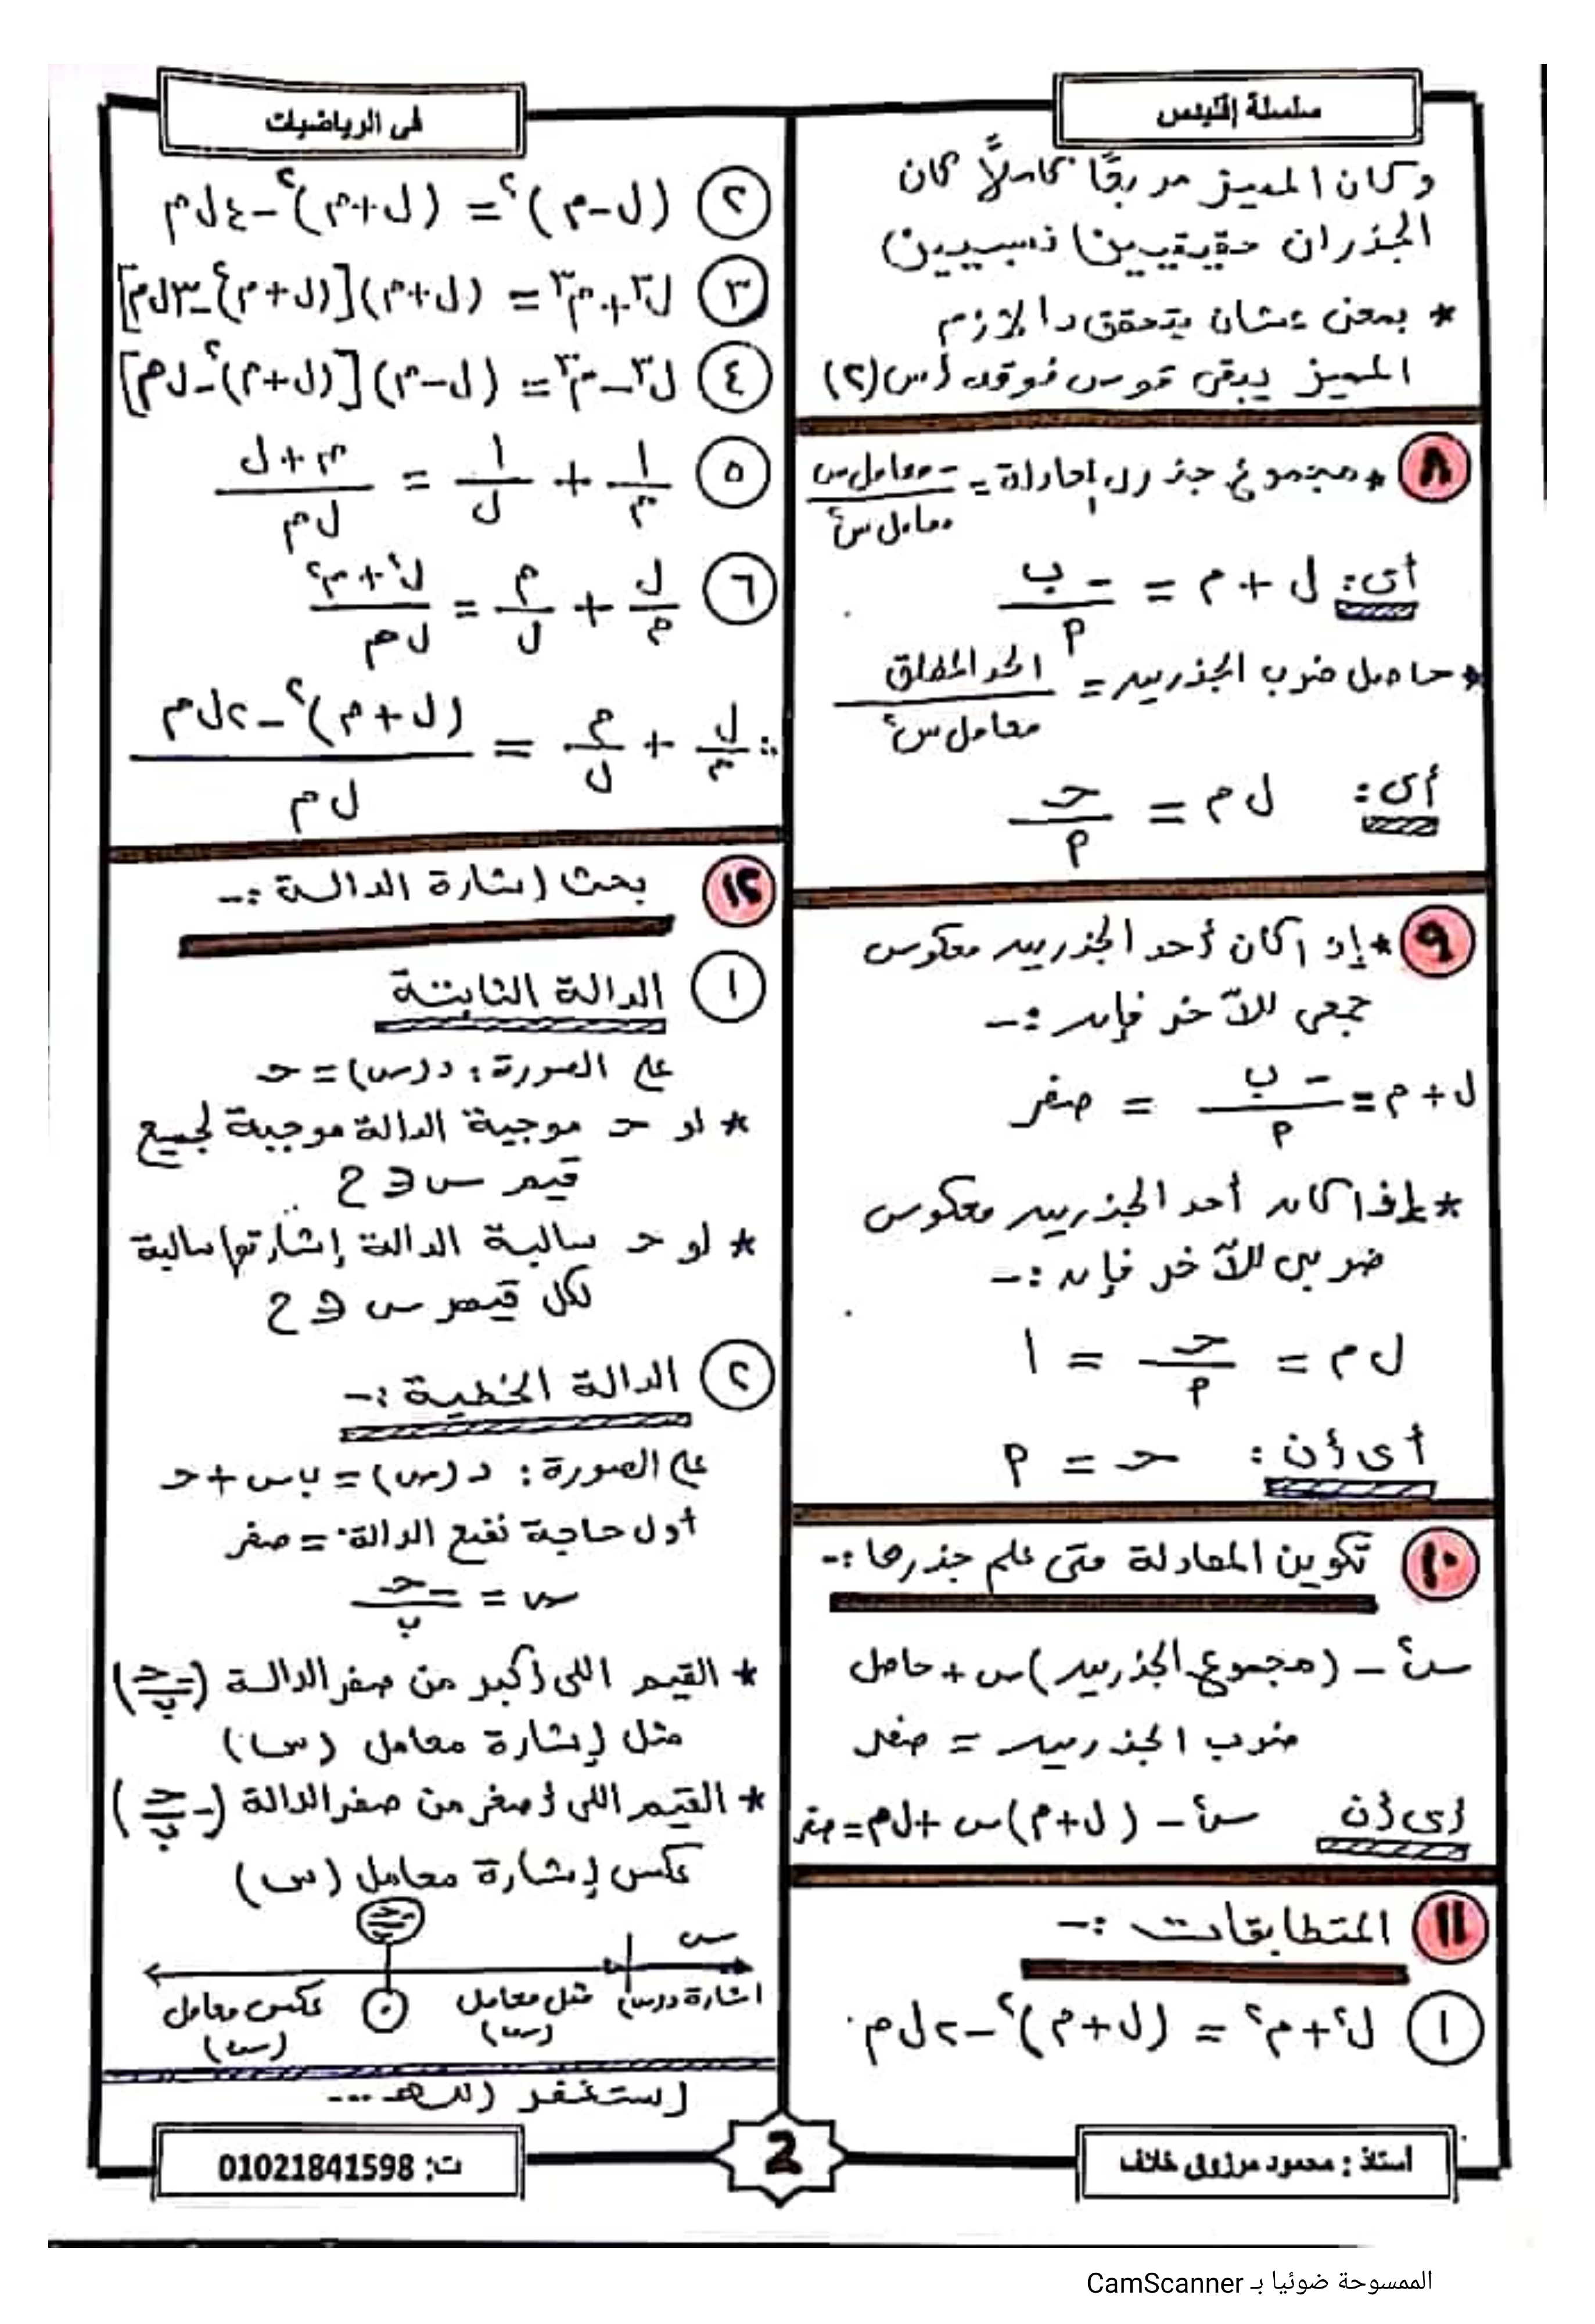 سلسلة إقليدس
في الرياضيات
وكان المميز مربعًا كاملًا كان
الجذران حقيقيين نسبيين
* بمعنى عشان يتحقق دا لازم
المميز يبقى قوس فوقه أس (٢)
٨ * مجموع جذرى المعادلة = -معامل س / معامل س٢
أى: ل + م = -ب / م
* حاصل ضرب الجذرين = الحد المطلق / معامل س٢
أى: ل م = حـ / م
٩ * إذا كان أحد الجذرين معكوس
جمعى للآخر فإن :-
ل + م = -ب / م = صفر
* إذا كان أحد الجذرين معكوس
ضربى للآخر فإن :-
ل م = حـ / م = ١
أى أن : حـ = م
١٠ تكوين المعادلة متى علم جذرها :-
س٢ - (مجموع الجذرين) س + حاصل
ضرب الجذرين = صفر
أى أن س٢ - (ل+م) س + ل م = صفر
١١ المتطابقات :-
١ ل٢ + م٢ = (ل+م)٢ - ٢ل م
٢ (ل-م)٢ = (ل+م)٢ - ٤ل م
٣ ل٣ + م٣ = (ل+م)[(ل+م)٢ - ٣ل م]
٤ ل٣ - م٣ = (ل-م)[(ل+م)٢ - ل م]
٥ ١/م + ١/ل = م+ل / ل م
٦ ل/م + م/ل = ل٢+م٢ / ل م
∴ ل/م + م/ل = (ل+م)٢ - ٢ل م / ل م
١٢ بحث إشارة الدالة :-
١ الدالة الثابتة
على الصورة : د(س) = حـ
* لو حـ موجبة الدالة موجبة لجميع
قيم س ∈ ح
* لو حـ سالبة الدالة إشارتها سالبة
لكل قيم س ∈ ح
٢ الدالة الخطية :-
على الصورة : د(س) = ب س + حـ
أول حاجة نضع الدالة = صفر
س = -حـ / ب
* القيم اللى أكبر من صفر الدالة (-حـ/ب)
مثل إشارة معامل (س)
* القيم اللى أصغر من صفر الدالة (-حـ/ب)
عكس إشارة معامل (س)
-حـ/ب
س
اشارة د(س) مثل معامل (س) ٠ عكس معامل (س)
إستغفر الله ...
أستاذ : محمود مرزوق خلاف
2
ت: 01021841598
الممسوحة ضوئيا بـ CamScanner